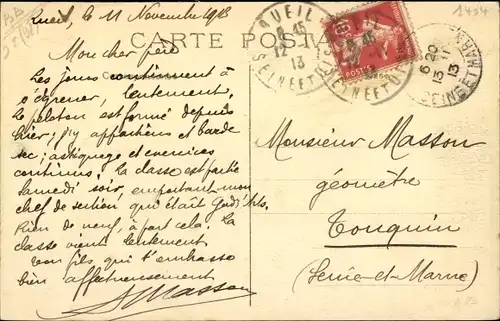 Rueil, le 11 Novembre 1913
CARTE POSTALE
1434
RUEIL
13
SEINE ET OISE
POSTES
SEINE ET OISE
6 20
13 11
13
Mon cher père
Les jours continuent à
s'égrener, lentement.
Le peloton est formé depuis
hier; j'y appartiens et barde
sec; astiquage et exercices
continus! La classe est partie
Samedi soir, emportant mon
chef de section qui était
Rien de neuf, à part cela. La
classe vient lentement
ton fils qui t'embrasse
bien affectueusement
Masson
Monsieur Masson
géomètre
Touquin
(Seine-et-Marne)